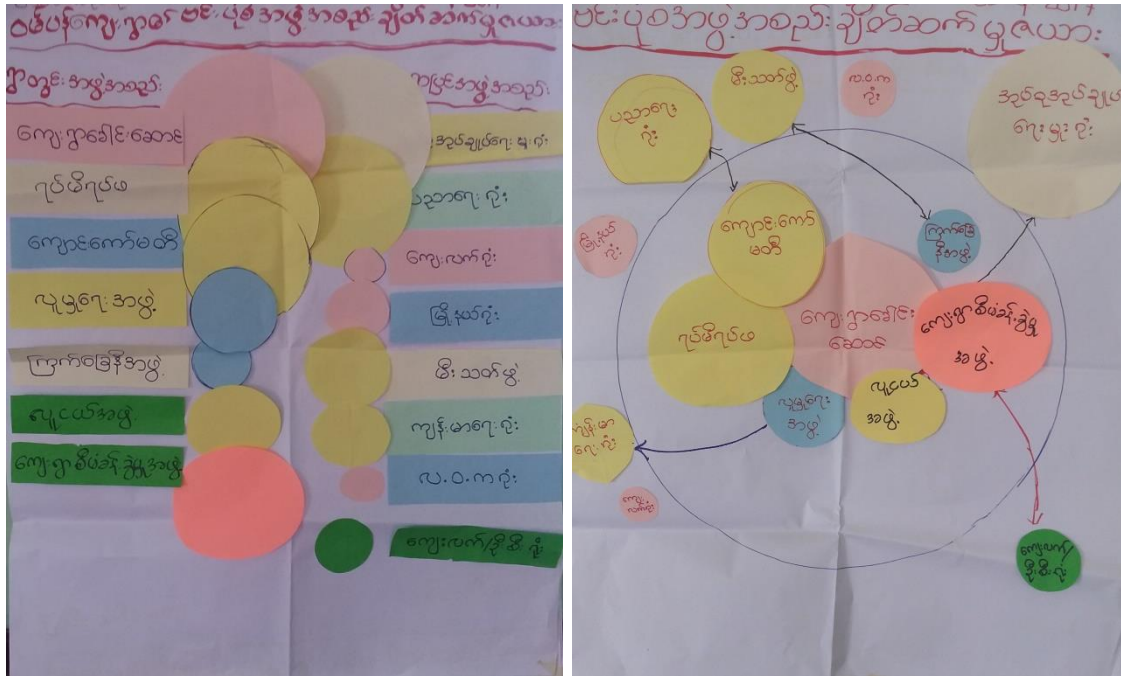 ဝမ်ပန်ကျေးရွာ၏ ဗင်းပုံစံအဖွဲ့အစည်းချိတ်ဆက်မှုဇယား
ရွာတွင်းအဖွဲ့အစည်း
ကျေးရွာခေါင်းဆောင်
ရပ်မိရပ်ဖ
ကျောင်းကော်မတီ
လူမှုရေးအဖွဲ့
ကြက်ခြေနီအဖွဲ့
လူငယ်အဖွဲ့
ကျေးရွာစီမံခန့်ခွဲမှုအဖွဲ့
အုပ်ချုပ်ရေးမှူးရုံး
ပညာရေးရုံး
ကျေးလက်ရုံး
မြို့နယ်ရုံး
မီးသတ်ဖွဲ့
ကျန်းမာရေးရုံး
လ.ဝ.ကရုံး
ကျေးလက်/ဦးစီးရုံး
ဗင်းပုံစံအဖွဲ့အစည်းချိတ်ဆက်မှုဇယား
ပညာရေး
ရုံး
မီးသတ်ဖွဲ့
လ.ဝ.က
ရုံး
ရေးမှူးရုံး
မြို့နယ်
ရုံး
ကျောင်းကော်
မတီ
ကြက်ခြေ
နီအဖွဲ့
ရပ်မိရပ်ဖ
ကျေးရွာခေါင်း
ဆောင်
ကျေးရွာစီမံခန့်ခွဲမှု
အဖွဲ့
လူမှုရေး
အဖွဲ့
လူငယ်
အဖွဲ့
ကျန်းမာ
ရေးရုံး
ကျေး
လက်ရုံး
ကျေးလက်/
ဦးစီးရုံး